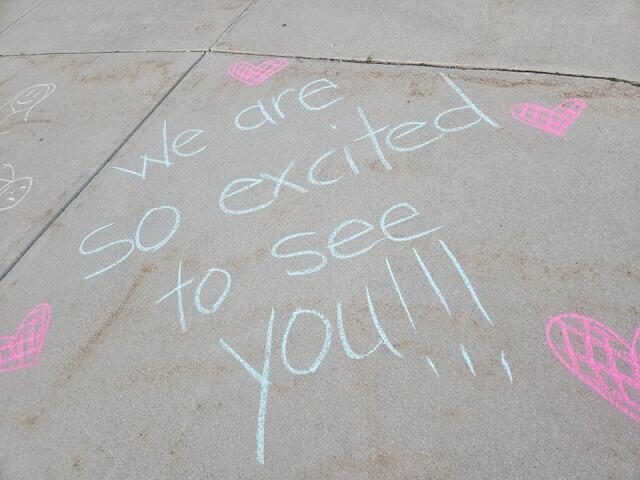 we are
so excited
to see
you!!!